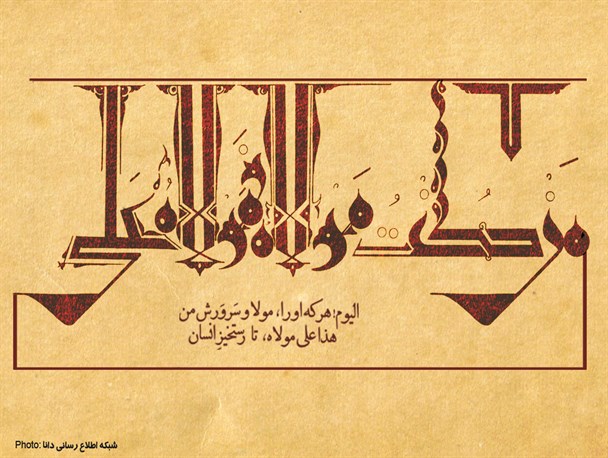 مَن كُنتُ مولاه فمولاه علي
الیوم: هر که او را، مولا و سَروَرش من
هذا علی مولاه، تا رستخیزِ انسان
Photo: شبکه اطلاع رسانی دانا